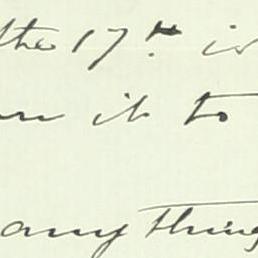 the 17th is
it to
anything